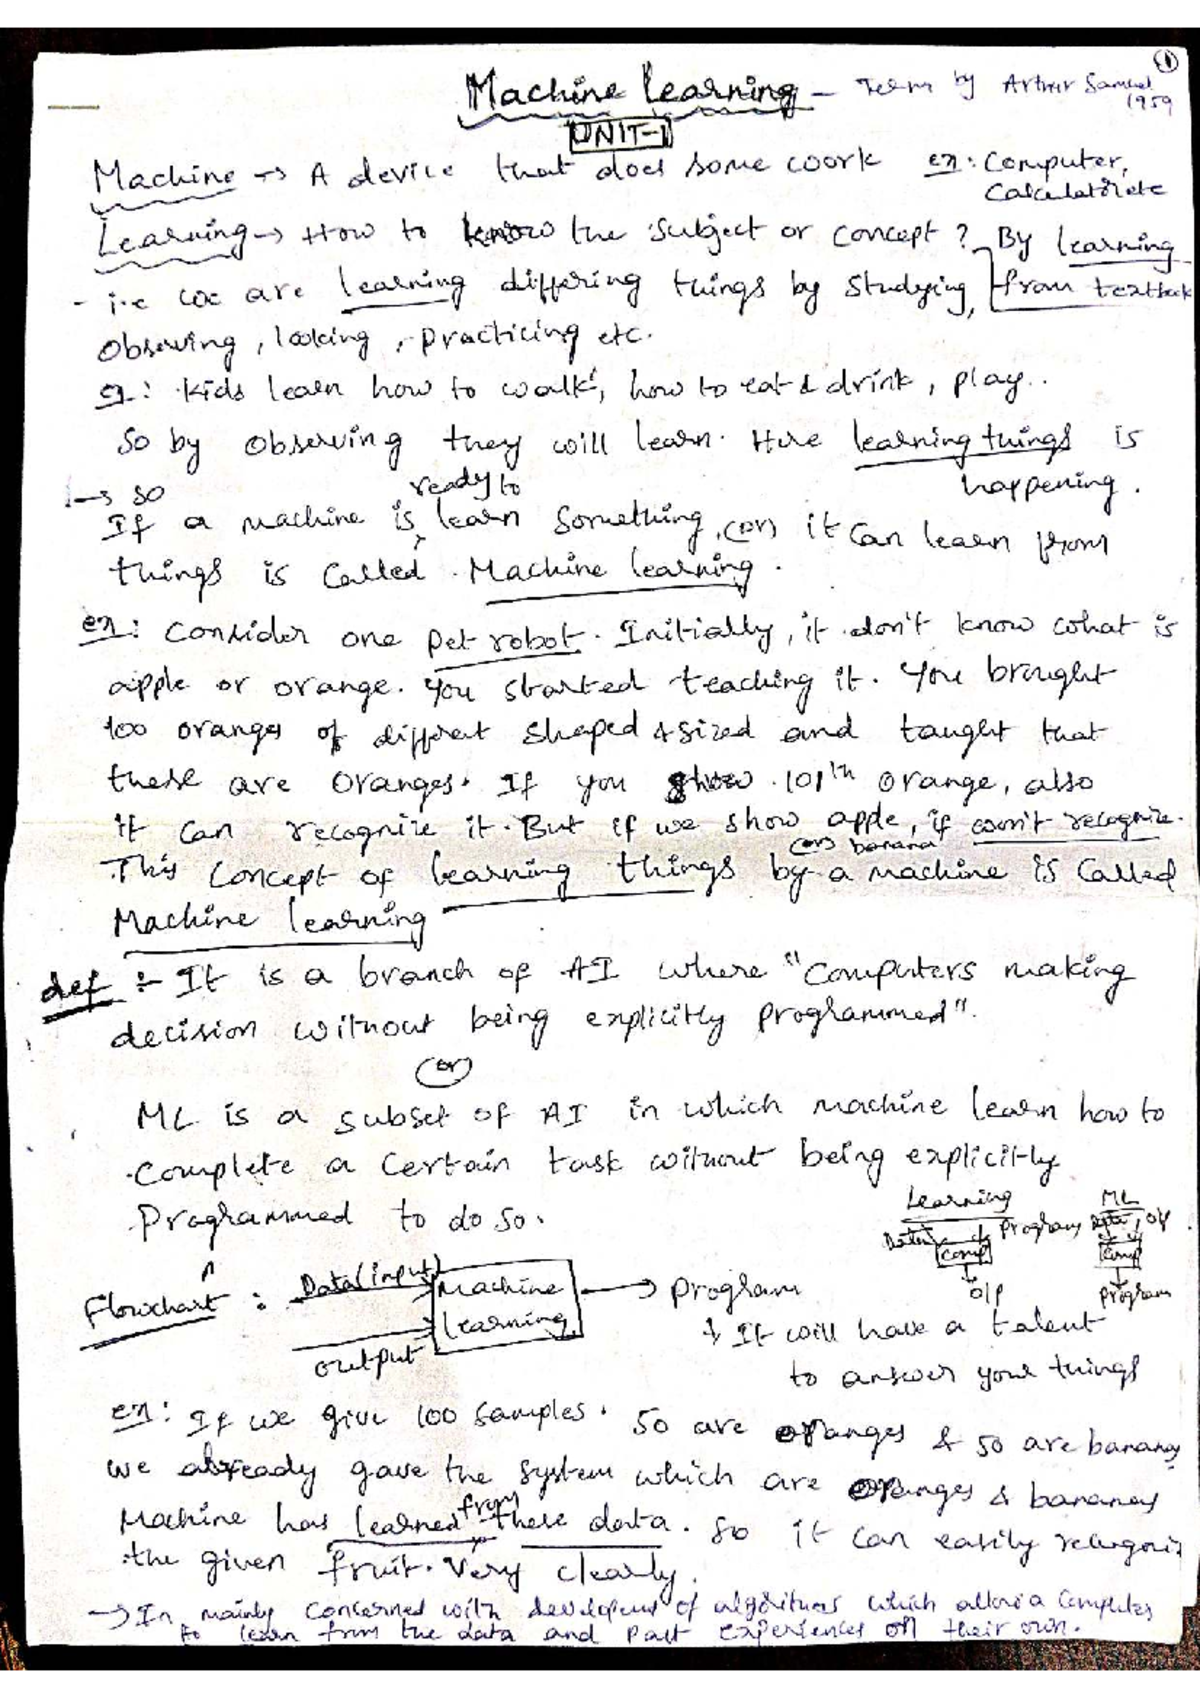 1
Machine Learning - Term by Arthur Samuel
1959
UNIT-1
Machine → A device that does some work ex: Computer,
Calculator etc
Learning → How to know the subject or concept? By learning
from textbook
- i.e we are learning differing things by studying,
Observing, looking, practicing etc.
eg: Kids learn how to walk, how to eat & drink, play..
So by observing they will learn. Here learning things is
happening.
→ So
ready to
If a machine is learn something (or) it can learn from
things is called Machine learning.
ex: Consider one pet robot. Initially, it don't know what is
apple or orange. You started teaching it. You brought
100 oranges of different shaped & sized and taught that
these are oranges. If you show 101th orange, also
it can recognize it. But if we show apple, it won't recognize.
(or) banana
This concept of learning things by a machine is called
Machine learning
def :- It is a branch of AI where "Computers making
decision without being explicitly programmed".
(or)
ML is a subset of AI in which machine learn how to
complete a certain task without being explicitly
Programmed to do so.
Learning
Data Program
Comp
o/p
ML
Data, o/p
Comp
Program
Flowchart :
Data (input)
output
Machine
Learning
→ Program
↓ It will have a talent
to answer your things
ex: If we give 100 samples. 50 are oranges & 50 are bananas
we already gave the system which are oranges & bananas
from
Machine has learned these data. So it can easily
the given fruit. Very clearly.
→ In mainly concerned with of algorithms which a Computer
to learn from the data and past experiences on their own.